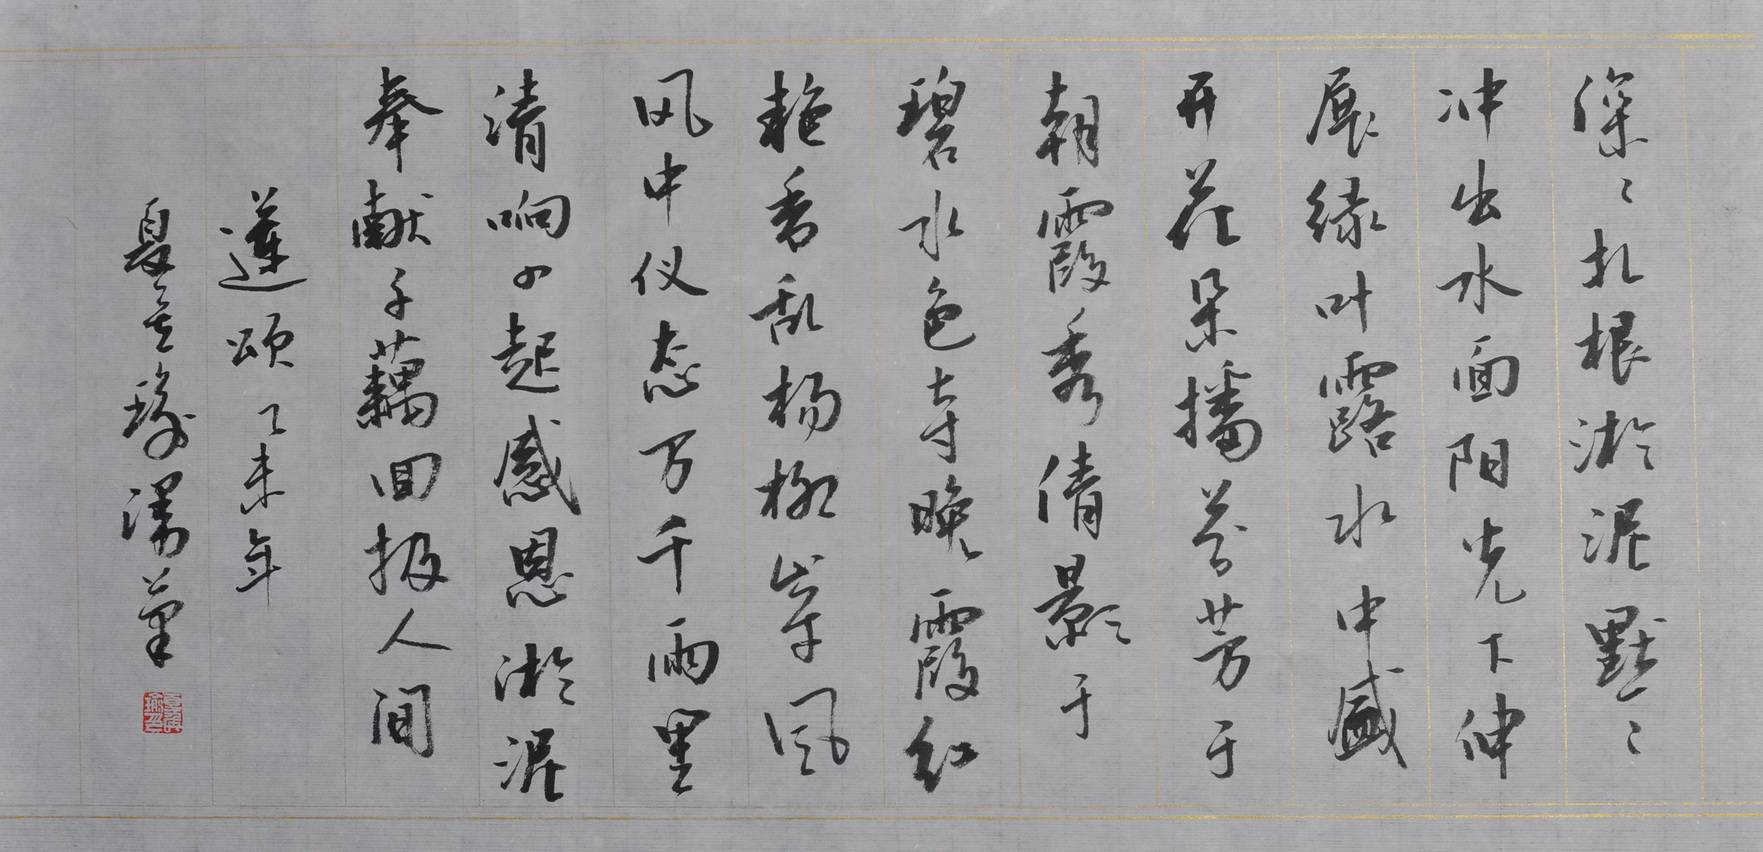 深〻扎根淤泥默〻
冲出水面阳光下伸
展绿叶露水中盛
开花朵播芬芳于
朝霞秀倩影于
碧水色夺晚霞红
艳香乱杨柳岸风
风中仪态万千雨里
清响四起感恩淤泥
奉献子藕回报人间
莲颂 乙未年
夏